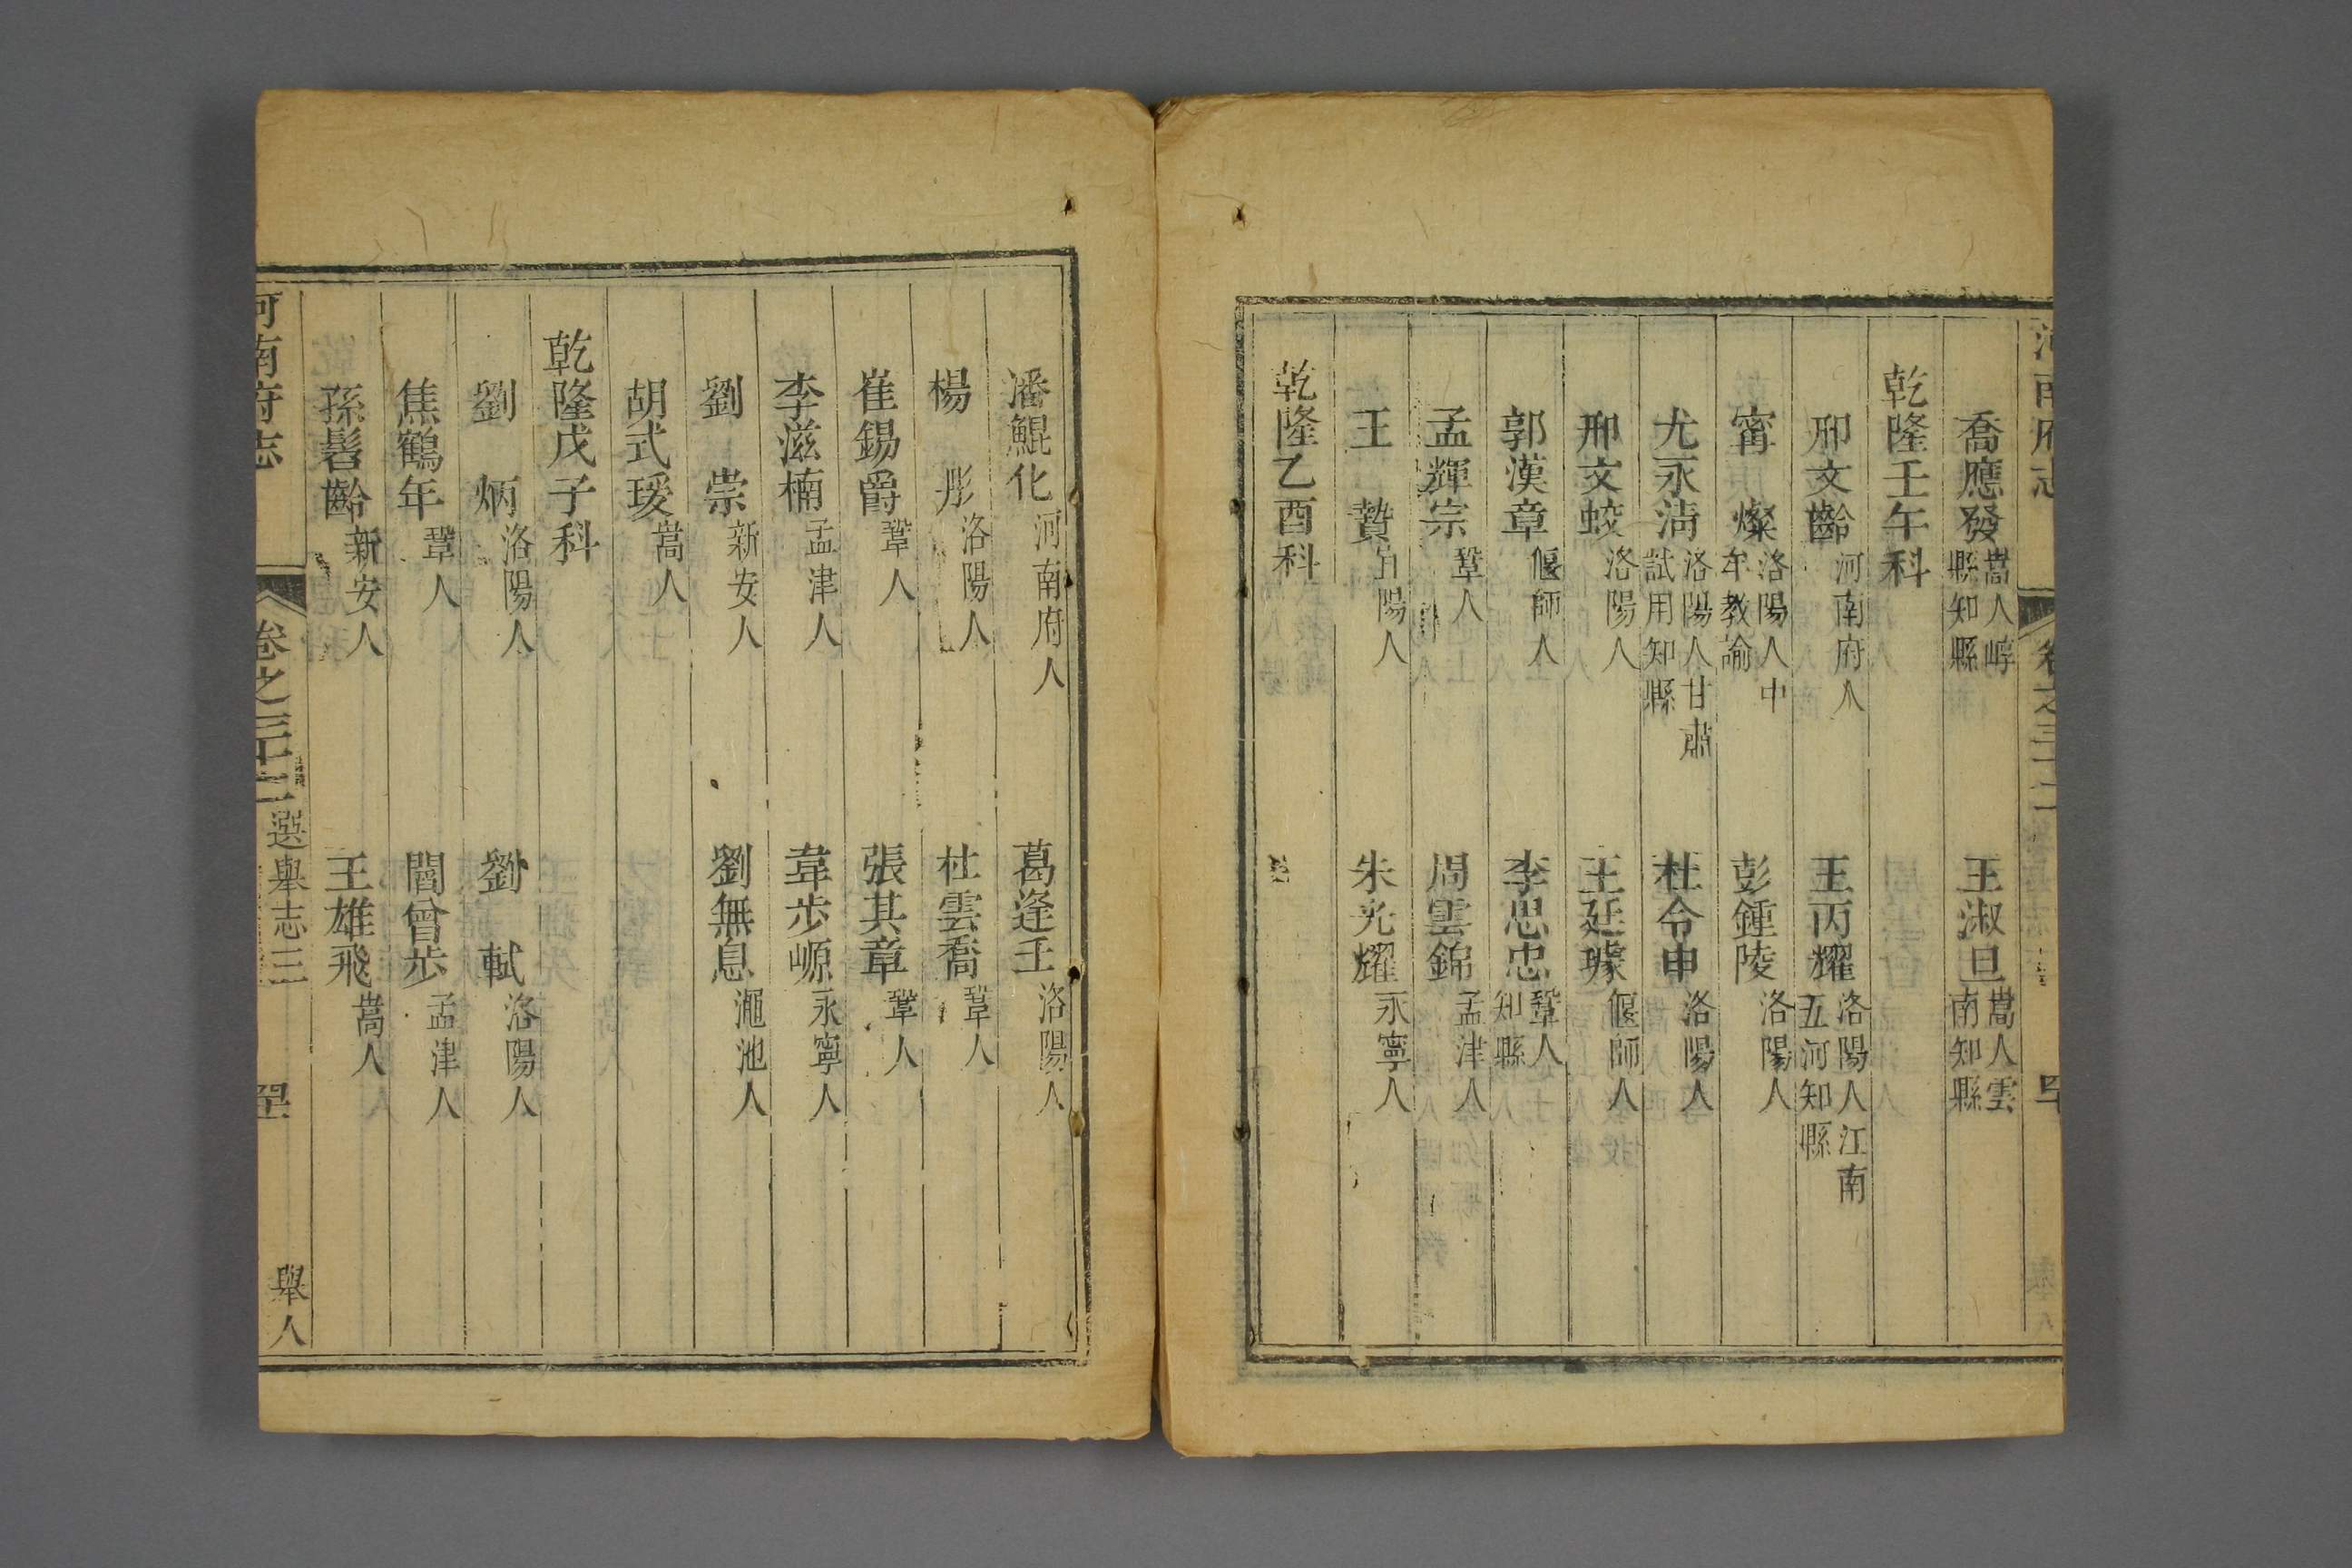 河南府志
喬應發 嵩人嶂縣知縣 王淑旦 嵩人雲南知縣
乾隆壬午科
邢文齡 河南府人 王丙耀 洛陽人江南五河知縣
甯燦 洛陽人中牟教諭 彭鍾陵 洛陽人
尤永清 洛陽人甘肅試用知縣 杜令申 洛陽人
邢文蛟 洛陽人 王廷璩 偃師人
郭漢章 偃師人 李思忠 鞏人知縣
孟輝宗 鞏人 周雲錦 孟津人
王贄 宜陽人 朱光耀 永寧人
乾隆乙酉科
潘鯤化 河南府人 葛逢壬 洛陽人
楊彤 洛陽人 杜雲喬 鞏人
崔錫爵 鞏人 張其章 鞏人
李滋楠 孟津人 韋步嫄 永寧人
劉崇 新安人 劉無息 澠池人
胡式瑗 嵩人
乾隆戊子科
劉炳 洛陽人 劉軾 洛陽人
焦鶴年 鞏人 閻曾步 孟津人
孫髫齡 新安人 王雄飛 嵩人
河南府志 卷之三十二 選舉志三 舉人